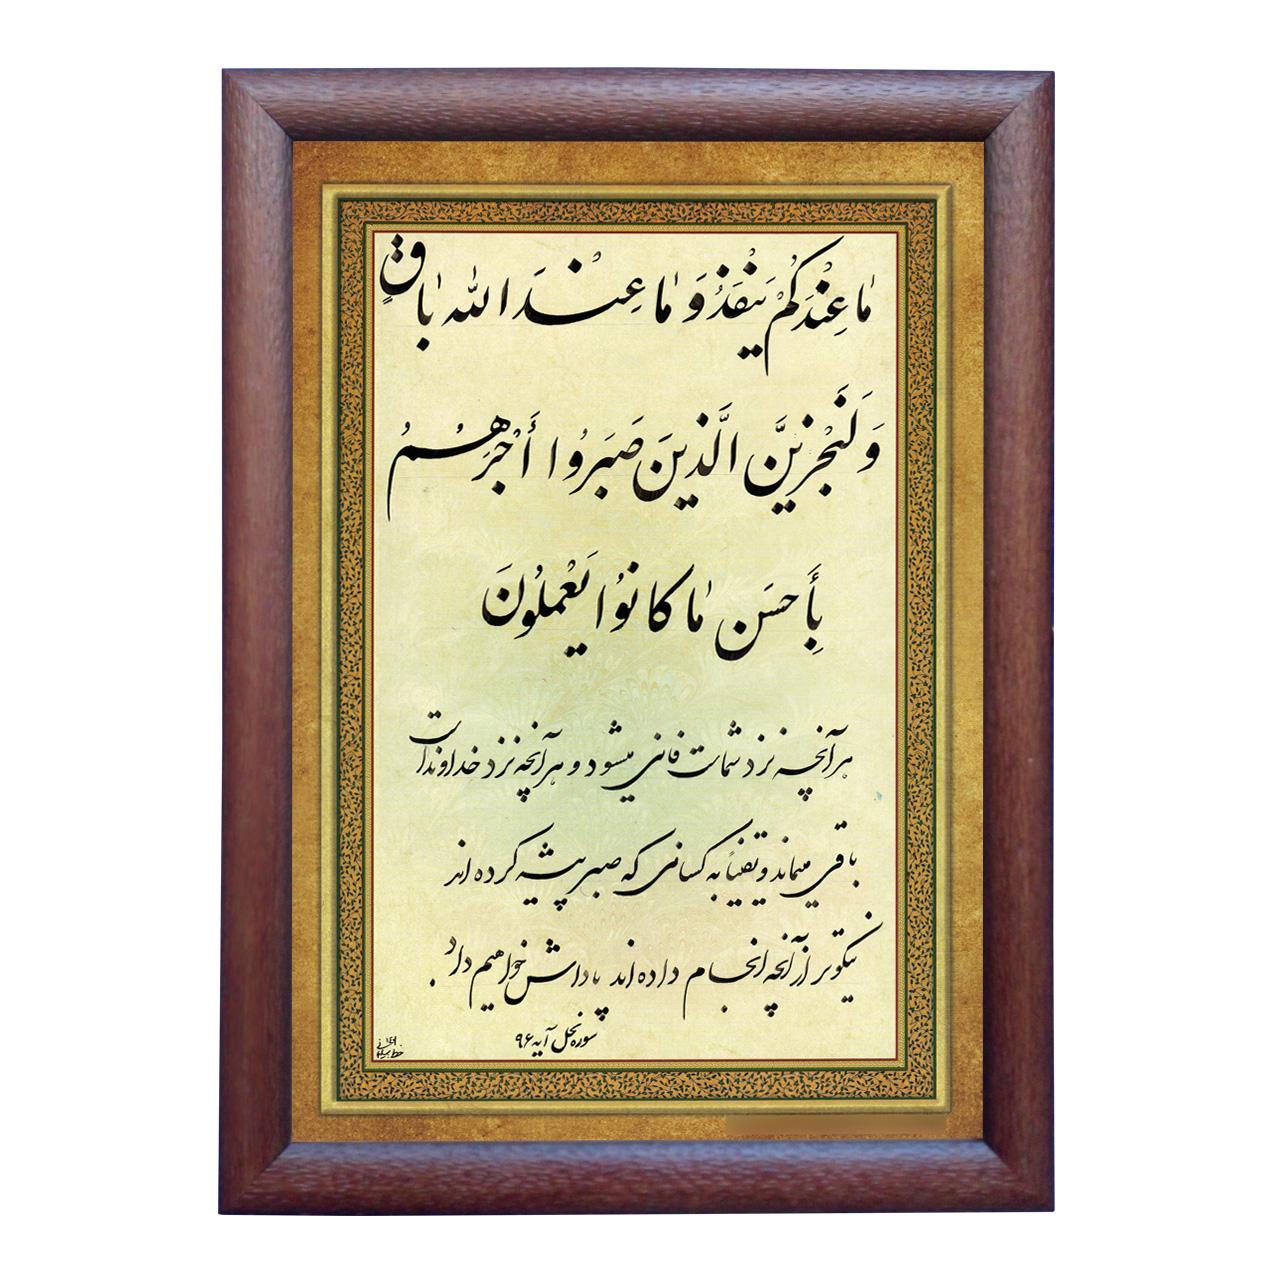 مٰا عِنْدَکُمْ یَنْفَذُ وَ مٰا عِنْدَ الله بٰاقٍ
وَ لَنَجْزِیَنَّ الَّذینَ صَبَرُوا أَجْرَهُمُ
بِأَحسَن مٰا کانوُا یَعْملُونَ
هر آنچه نزد شماست فانی میشود و هر آنچه نزد خداوند است
باقی میماند و یقیناً به کسانی که صبر پیشه کرده اند
نیکوتر از آنچه انجام داده اند پاداش خواهیم داد.
سوره نحل آیه ۹۶